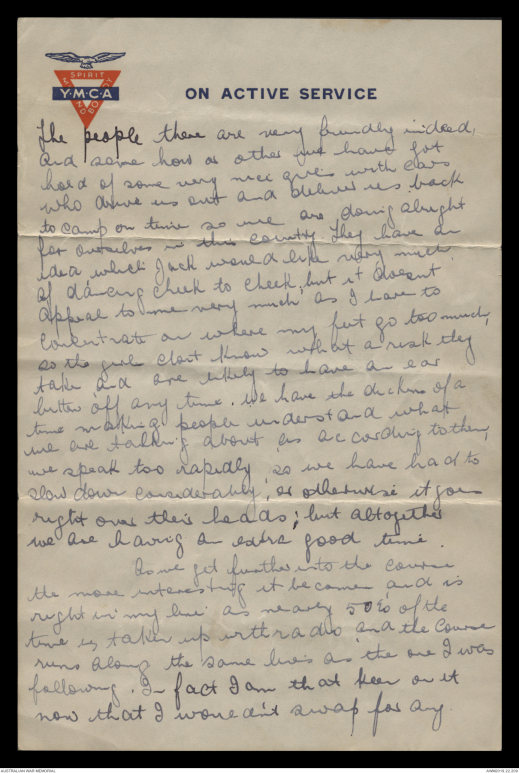 SPIRIT
MIND
BODY
Y·M·C·A
ON ACTIVE SERVICE
The people there are very friendly indeed,
and some how or other just have got
hold of some very nice girls with cars
who drive us out and deliver us back
to camp on time so we are doing alright
for ourselves in this country. They have an
idea, which Jack would like very much,
of dancing cheek to cheek, but it doesnt
appeal to me very much as I have to
concentrate on where my feet go too much,
so the girls dont know what a risk they
take and are likely to have an ear
bitten off any time. We have the dickens of a
time making people understand what
we are talking about as according to them,
we speak too rapidly so we have had to
slow down considerably, or otherwise it goes
right over their heads; but altogether
we are having an extra good time.
As we get further into the course
the more interesting it becomes, and is
right in my line as nearly 50% of the
time is taken up with radio and the course
runs along the same lines as the one I was
following. In fact I am that keen on it
now that I wouldn't swap for any.
AUSTRALIAN WAR MEMORIAL